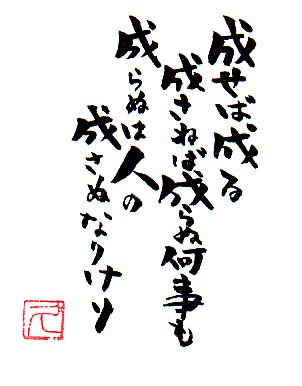 成せば、成る
成さねば、成らぬ何事も
成らぬは人の
成さぬなりけり